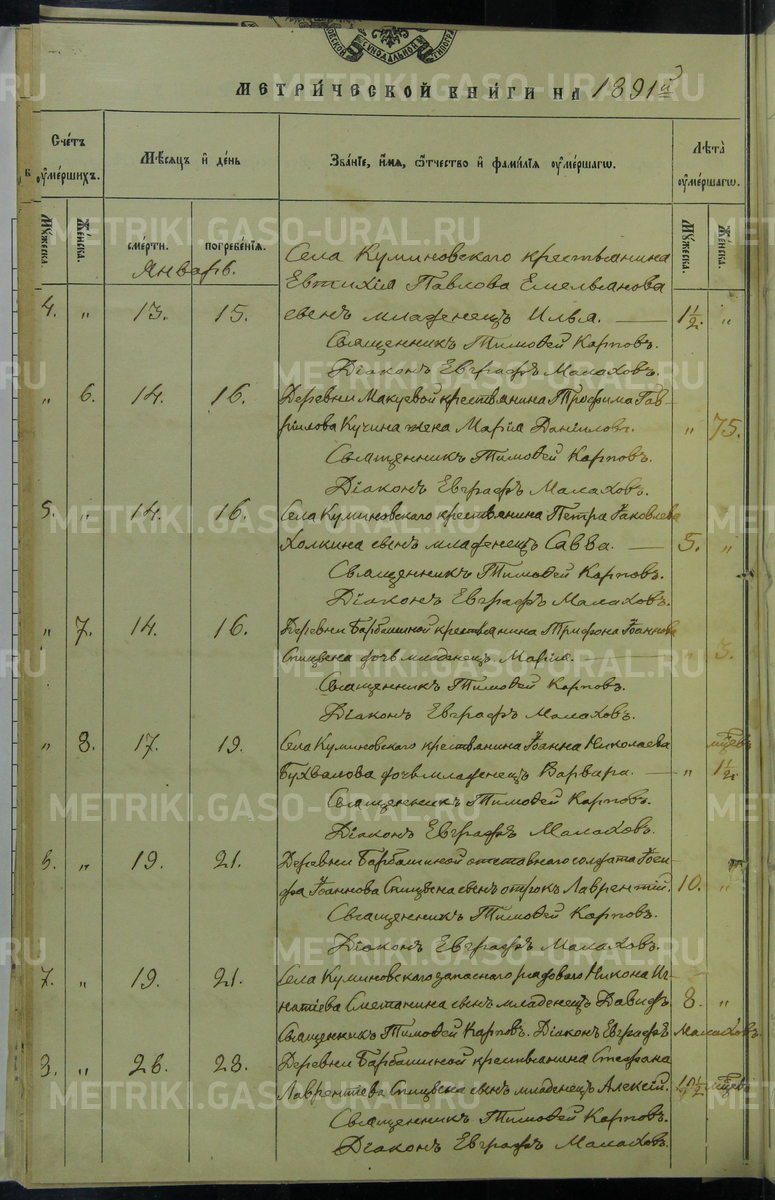 МЕТРИ́ЧЕСКОЙ КНИ́ГИ НА 1891й
Сче́тъ ᲂу҆ме́ршихъ.
Мѣ́сяцъ и҆ де́нь
Зва́нїе, и҆́мя, ѻ҆́тчество и҆ фами́лїя ᲂу҆ме́ршагѡ.
Лѣ́та ᲂу҆ме́ршагѡ.
Мꙋ́жеска. Же́нска.
сме́рти. погребе́нїя.
Мꙋ́жеска. Же́нска.
Январь.
Села Куминовского крестьянина
Евтихія Павлова Емельянова
4. „ 13. 15. сынъ младенецъ Илья. 1½. „
Священникъ Тимофей Карповъ.
Діаконъ Евграфъ Малаховъ.
„ 6. 14. 16. Деревни Макуевой крестьянина Трофима Гав-
рилова Кучина жена Марія Даніилов. „ 75.
Священникъ Тимофей Карповъ.
Діаконъ Евграфъ Малаховъ.
5. „ 14. 16. Села Куминовского крестьянина Петра Іаковлева
Холкина сынъ младенецъ Савва. 5. „
Священникъ Тимофей Карповъ.
Діаконъ Евграфъ Малаховъ.
„ 7. 14. 16. Деревни Барбашиной крестьянина Трифона Іоаннова
Спицвена дочь младенецъ Марія. „ 3.
Священникъ Тимофей Карповъ.
Діаконъ Евграфъ Малаховъ.
„ 8. 17. 19. Села Куминовского крестьянина Іоанна Николаева мѣсцевъ
Бухвалова дочь младенецъ Варвара. „ 1½.
Священникъ Тимофей Карповъ.
Діаконъ Евграфъ Малаховъ.
19. 21. Деревни Барбашиной отставного солдата Іоси-
фа Іоаннова Спицвена сынъ отрокъ Лаврентій. 10. „
Священникъ Тимофей Карповъ.
Діаконъ Евграфъ Малаховъ.
7. „ 19. 21. Села Куминовского запасного рядового Никона Иг-
натіева Сметанина сынъ младенецъ Давидъ 8. „
Священникъ Тимофей Карповъ. Діаконъ Евграфъ Малаховъ.
8. „ 26. 28. Деревни Барбашиной крестьянина Стефана
Лаврентіева Спицвена сынъ младенецъ Алексій. мѣсцевъ
Священникъ Тимофей Карповъ.
Діаконъ Евграфъ Малаховъ.
METRIKI.GASO-URAL.RU